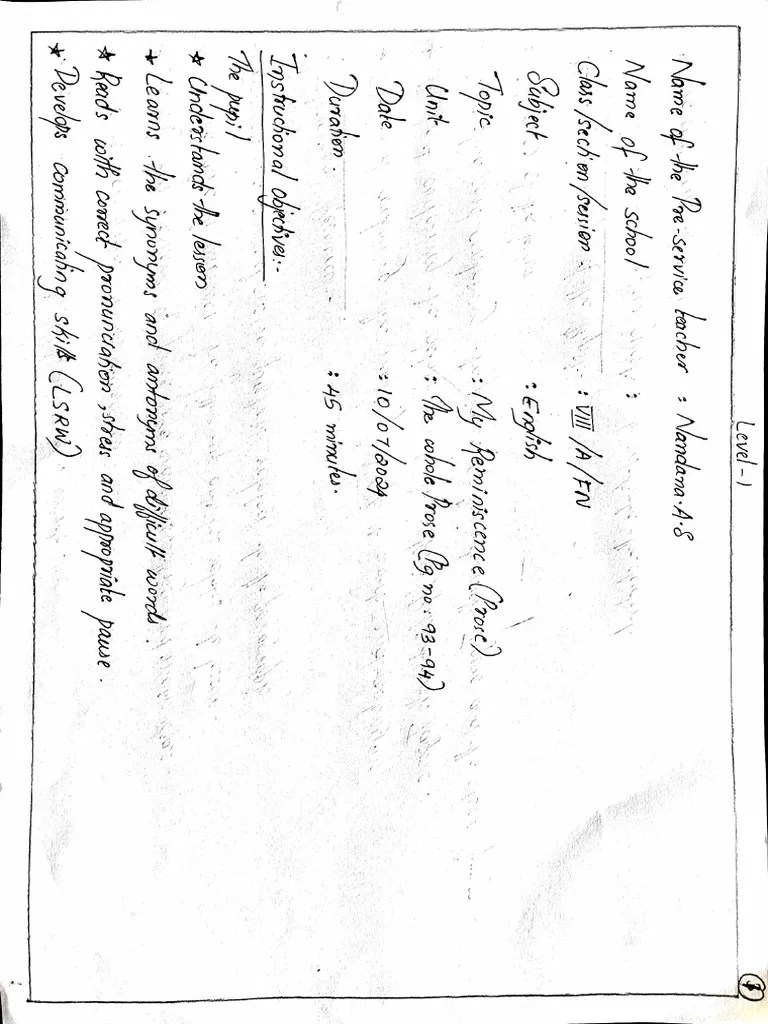 Level-1
3
Name of the Pre-service teacher : Nandana.A.S
Name of the school :
Class/section/session : VIII/A/FN
Subject : English
Topic : My Reminiscence (Prose)
Unit : The whole Prose (Pg no: 93-94)
Date : 10/07/2024
Duration : 45 minutes.
Instructional Objectives:-
The pupil
* Understands the lesson
* Learns the synonyms and antonyms of difficult words.
* Reads with correct pronunciation, stress and appropriate pause.
* Develops communicating skills (LSRW).